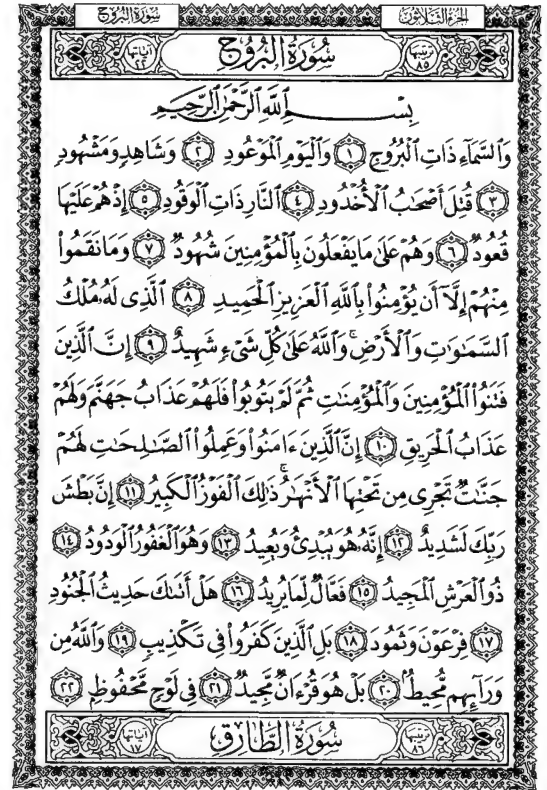 سُورَةُ البُرُوجِ
الجزء الثلاثون
آياتها ٢٢
سُورَةُ البُرُوجِ
ترتيبها ٨٥
بِسْمِ ٱللَّهِ ٱلرَّحْمَٰنِ ٱلرَّحِيمِ
وَٱلسَّمَآءِ ذَاتِ ٱلْبُرُوجِ ١ وَٱلْيَوْمِ ٱلْمَوْعُودِ ٢ وَشَاهِدٍ وَمَشْهُودٍ
٣ قُتِلَ أَصْحَٰبُ ٱلْأُخْدُودِ ٤ ٱلنَّارِ ذَاتِ ٱلْوَقُودِ ٥ إِذْ هُمْ عَلَيْهَا
قُعُودٌ ٦ وَهُمْ عَلَىٰ مَا يَفْعَلُونَ بِٱلْمُؤْمِنِينَ شُهُودٌ ٧ وَمَا نَقَمُوا۟
مِنْهُمْ إِلَّآ أَن يُؤْمِنُوا۟ بِٱللَّهِ ٱلْعَزِيزِ ٱلْحَمِيدِ ٨ ٱلَّذِى لَهُۥ مُلْكُ
ٱلسَّمَٰوَٰتِ وَٱلْأَرْضِ ۚ وَٱللَّهُ عَلَىٰ كُلِّ شَىْءٍ شَهِيدٌ ٩ إِنَّ ٱلَّذِينَ
فَتَنُوا۟ ٱلْمُؤْمِنِينَ وَٱلْمُؤْمِنَٰتِ ثُمَّ لَمْ يَتُوبُوا۟ فَلَهُمْ عَذَابُ جَهَنَّمَ وَلَهُمْ
عَذَابُ ٱلْحَرِيقِ ١٠ إِنَّ ٱلَّذِينَ ءَامَنُوا۟ وَعَمِلُوا۟ ٱلصَّٰلِحَٰتِ لَهُمْ
جَنَّٰتٌ تَجْرِى مِن تَحْتِهَا ٱلْأَنْهَٰرُ ۚ ذَٰلِكَ ٱلْفَوْزُ ٱلْكَبِيرُ ١١ إِنَّ بَطْشَ
رَبِّكَ لَشَدِيدٌ ١٢ إِنَّهُۥ هُوَ يُبْدِئُ وَيُعِيدُ ١٣ وَهُوَ ٱلْغَفُورُ ٱلْوَدُودُ ١٤
ذُو ٱلْعَرْشِ ٱلْمَجِيدُ ١٥ فَعَّالٌ لِّمَا يُرِيدُ ١٦ هَلْ أَتَىٰكَ حَدِيثُ ٱلْجُنُودِ
١٧ فِرْعَوْنَ وَثَمُودَ ١٨ بَلِ ٱلَّذِينَ كَفَرُوا۟ فِى تَكْذِيبٍ ١٩ وَٱللَّهُ مِن
وَرَآئِهِم مُّحِيطٌۢ ٢٠ بَلْ هُوَ قُرْءَانٌ مَّجِيدٌ ٢١ فِى لَوْحٍ مَّحْفُوظٍۭ ٢٢
آياتها ١٧
سُورَةُ الطَّارِقِ
ترتيبها ٨٦